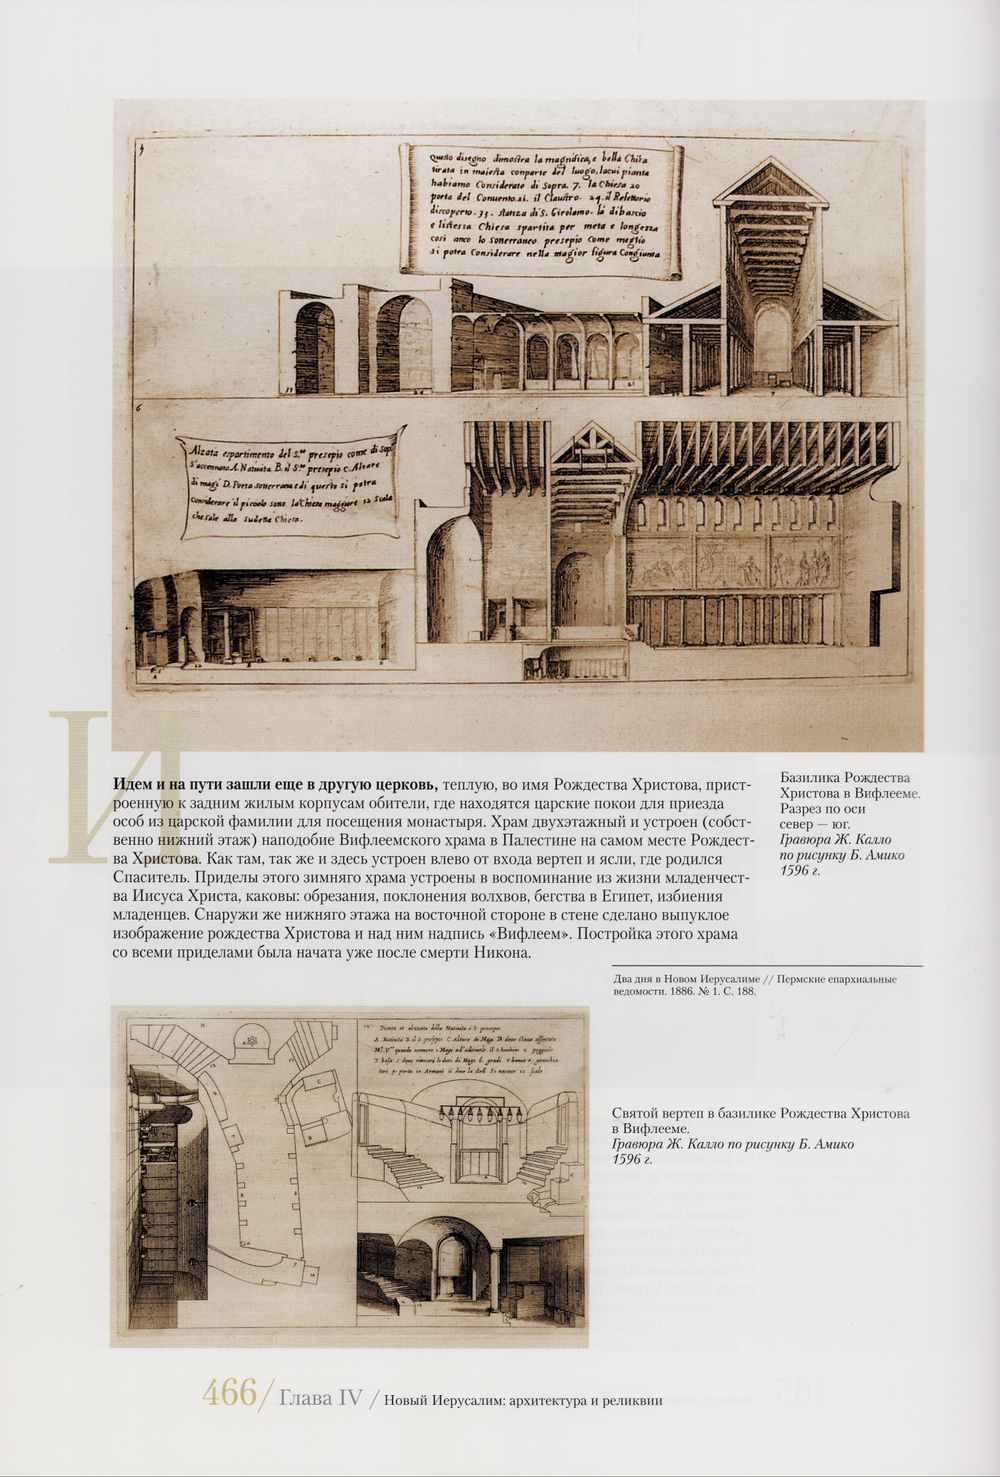 Questo disegno dimostra la magnifica, e bella Chiesa
tirata in maiesta conparte del luogo, lacui pianta
habiamo Considerato di Sopra. 7. la Chiesa 20
porta del Conuento. 21. il Claustro. 24. il Refettorio
discoperto. 33. stanza di S. Girolamo. la dibascio
e listessa Chiesa spartita per meta e longezza
cosi anco lo soterraneo presepio come meglio
si potra Considerare nella magior figura Congiunta
6
Alzata espartimento del S.mo presepio come di Sopª
S'accennato A. Natiuita B. il S.mo presepio C. Altare
di magi D. Porta sotterrana e di questo si potra
Considerare il piccolo sono la Chiesa maggiore 12 Scala
che sale alla Sudetta Chiesa.
И
Идем и на пути зашли еще в другую церковь, теплую, во имя Рождества Христова, прист-
роенную к задним жилым корпусам обители, где находятся царские покои для приезда
особ из царской фамилии для посещения монастыря. Храм двухэтажный и устроен (собст-
венно нижний этаж) наподобие Вифлеемского храма в Палестине на самом месте Рождест-
ва Христова. Как там, так же и здесь устроен влево от входа вертеп и ясли, где родился
Спаситель. Приделы этого зимняго храма устроены в воспоминание из жизни младенчест-
ва Иисуса Христа, каковы: обрезания, поклонения волхвов, бегства в Египет, избиения
младенцев. Снаружи же нижняго этажа на восточной стороне в стене сделано выпуклое
изображение рождества Христова и над ним надпись «Вифлеем». Постройка этого храма
со всеми приделами была начата уже после смерти Никона.
Базилика Рождества
Христова в Вифлееме.
Разрез по оси
север — юг.
Гравюра Ж. Калло
по рисунку Б. Амико
1596 г.
Два дня в Новом Иерусалиме // Пермские епархиальные
ведомости. 1886. № 1. С. 188.
Pianta et alzata della Natiuita e S. presepio
A. Natiuita B. il S. presepio C. Altare de Magi D. doue staua
Святой вертеп в базилике Рождества Христова
в Вифлееме.
Гравюра Ж. Калло по рисунку Б. Амико
1596 г.
466 / Глава IV / Новый Иерусалим: архитектура и реликвии